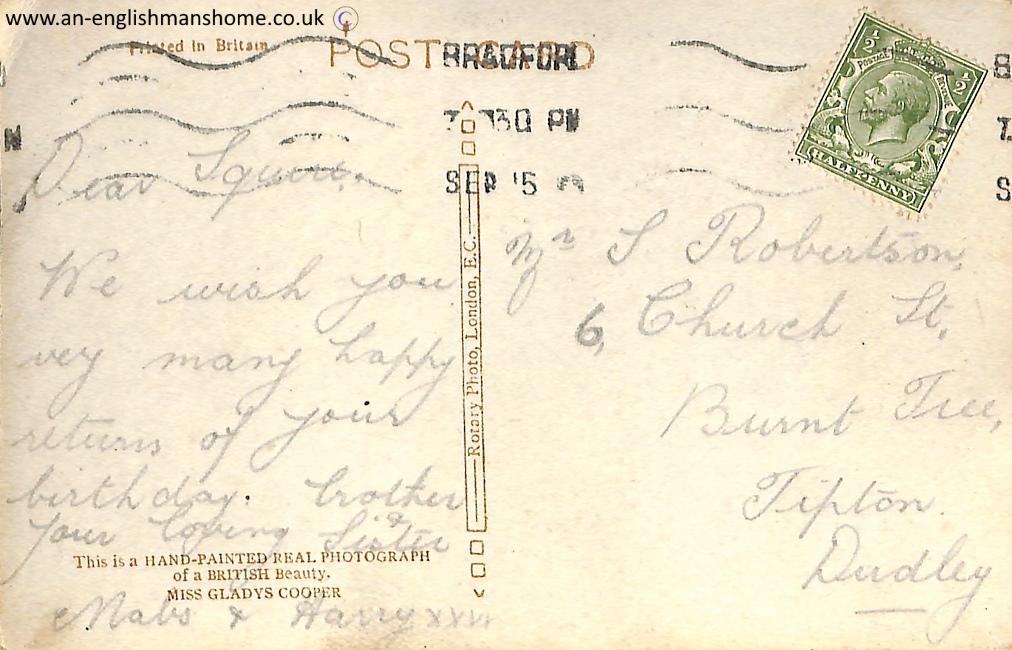 www.an-englishmanshome.co.uk
Printed in Britain
POST CARD
BRADFORD
30 PM
SEP 15
½ ½
POSTAGE REVENUE
HALFPENNY
Dear Squire.
We wish you
vey many happy
returns of your
birthday. brother
your loving Sister &
This is a HAND-PAINTED REAL PHOTOGRAPH
of a BRITISH Beauty.
MISS GLADYS COOPER
Mabs & Harry xxx
Rotary Photo, London, E.C.
Mr S. Robertson,
6, Church St,
Burnt Tree,
Tipton.
Dudley